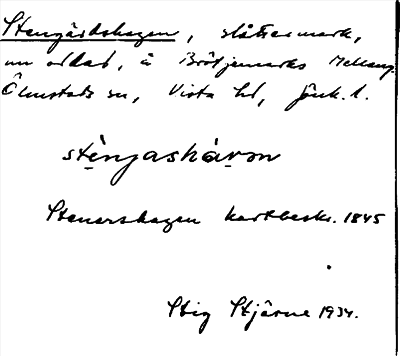 Stengärdshagen, slåttermark,
nu odlad, å Brötjemarks Mellang.
Ölmstads sn, Vista hd, Jönk. l.
stènjashàvən
Stenershagen kartbeskr. 1845
Stig Stjärne 1934.